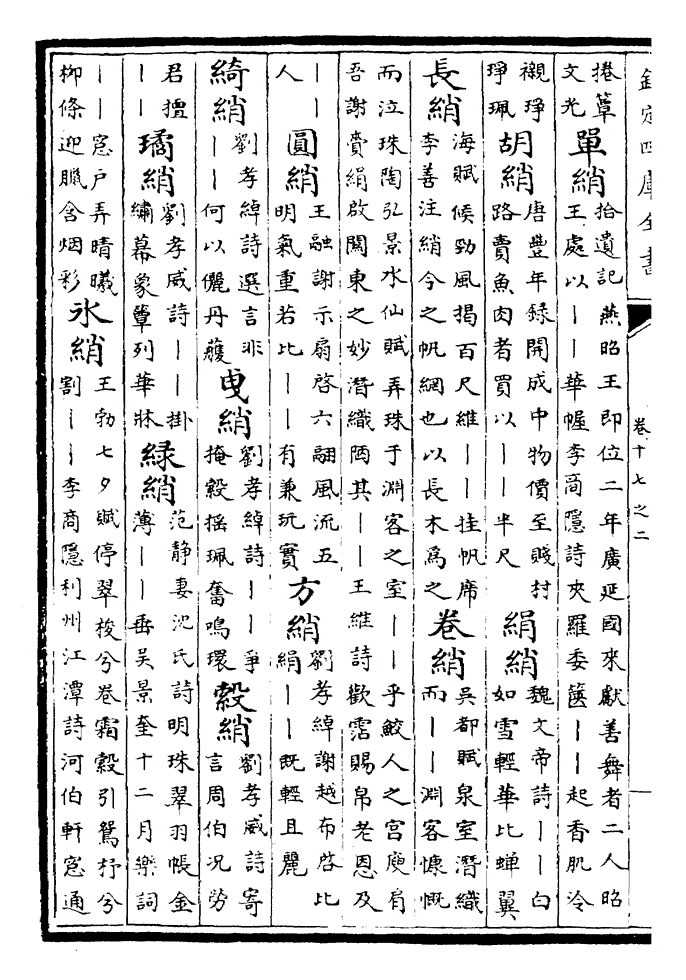 欽定四庫全書
卷十七之二
捲簟
文光
單綃
拾遺記燕昭王即位二年廣延國來獻善舞者二人昭
王處以——華幄李商隱詩夾羅委篋——起香肌冷
襯琤
琤珮
胡綃
唐豐年録開成中物價至賤村
路賣魚肉者買以——半尺
絹綃
魏文帝詩——白
如雪輕華比蟬翼
長綃
海賦候勁風揭百尺維——挂帆席
李善注綃今之帆網也以長木為之
卷綃
吳都賦泉室潛織
而——淵客慷慨
而泣珠陶弘景水仙賦弄珠于淵客之室——乎鮫人之宮庾肩
吾謝賚絹啟關東之妙潛織陋其——王維詩歡霑賜帛老恩及
——
人
圓綃
王融謝示扇啓六翮風流五
明氣重若比——有兼玩實
方綃
劉孝綽謝越布啓比
絹——既輕且麗
綺綃
劉孝綽詩選言非
——何以儷丹雘
曳綃
劉孝綽詩——爭
掩縠揺珮奮鳴環
縠綃
劉孝威詩寄
言周伯况勞
君擅
——
璚綃
劉孝威詩——掛
繡幕象簟列華牀
緑綃
范静妻沈氏詩明珠翠羽帳金
薄——垂吴景奎十二月樂詞
——窓户弄晴曦
柳條迎臘含烟彩
氷綃
王勃七夕賦停翠梭兮卷霜縠引鴛杼兮
割——李商隱利州江潭詩河伯軒窓通